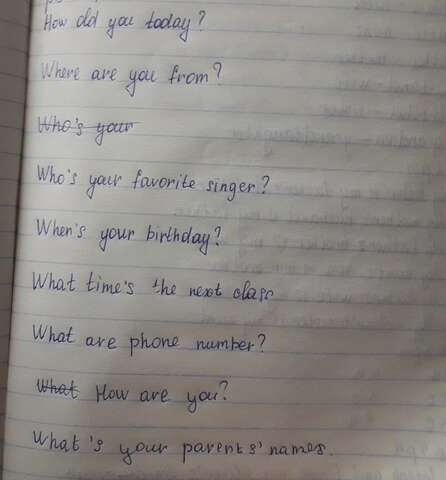 How old you today?
Where are you from?
Who's your
Who's your favorite singer?
When's your birthday?
What time's the next class
What are phone number?
What How are you?
What's your parents' names.